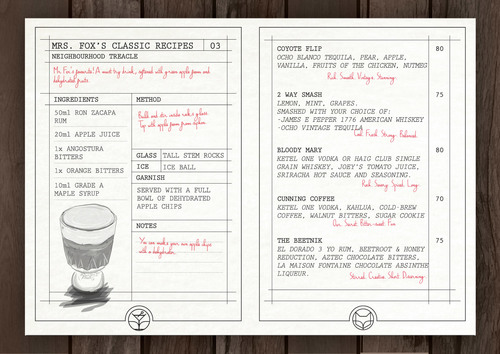 MRS. FOX'S CLASSIC RECIPES 03
NEIGHBOURHOOD TREACLE
Mr. Fox's favourite! A must try drink, with green apple foam and
dehydrated fruits.
INGREDIENTS
50ml RON ZACAPA
RUM
20ml APPLE JUICE
1x ANGOSTURA
BITTERS
1x ORANGE BITTERS
10ml GRADE A
MAPLE SYRUP
METHOD
Build and stir inside rock's glass.
Top with apple foam from siphon.
GLASS TALL STEM ROCKS
ICE ICE BALL
GARNISH
SERVED WITH A FULL
BOWL OF DEHYDRATED
APPLE CHIPS
NOTES
You can make your own apple chips
with a dehydrator.
COYOTE FLIP 80
OCHO BLANCO TEQUILA, PEAR, APPLE,
VANILLA, FRUITS OF THE CHICKEN, NUTMEG
Rich Smooth Velvety
2 WAY SMASH 75
LEMON, MINT, GRAPES.
SMASHED WITH YOUR CHOICE OF:
-JAMES E PEPPER 1776 AMERICAN WHISKEY
-OCHO VINTAGE TEQUILA
Cool Fresh Strong Balanced
BLOODY MARY 80
KETEL ONE VODKA OR HAIG CLUB SINGLE
GRAIN WHISKEY, JOEY'S TOMATO JUICE,
SRIRACHA HOT SAUCE AND SEASONING.
Rich Savoury Spiced Long
CUNNING COFFEE 70
KETEL ONE VODKA, KAHLUA, COLD-BREW
COFFEE, WALNUT BITTERS, SUGAR COOKIE
Sweet Bitter-sweet Fun
THE BEETNIK 75
EL DORADO 3 YO RUM, BEETROOT & HONEY
REDUCTION, AZTEC CHOCOLATE BITTERS,
LA MAISON FONTAINE CHOCOLATE ABSINTHE
LIQUEUR.
Stirred Creative Short